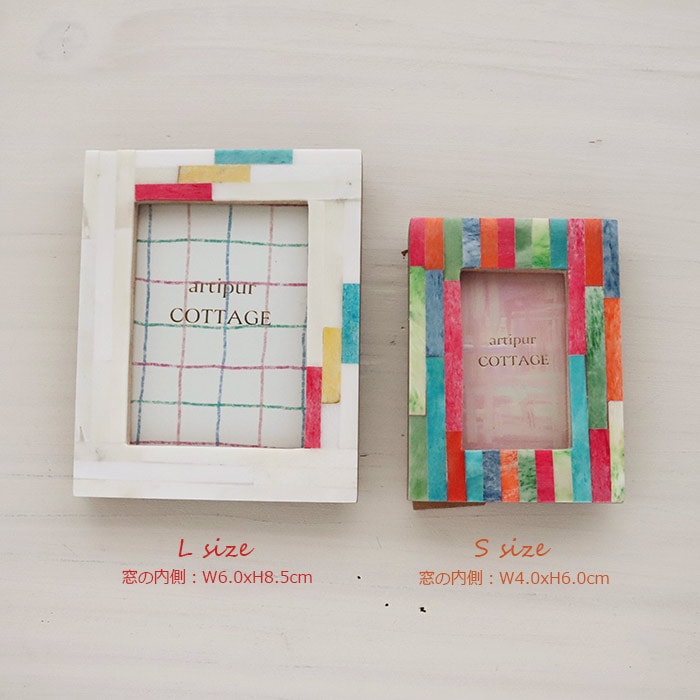 artipur
COTTAGE
artipur
COTTAGE
L size
窓の内側：W6.0xH8.5cm
S size
窓の内側：W4.0xH6.0cm